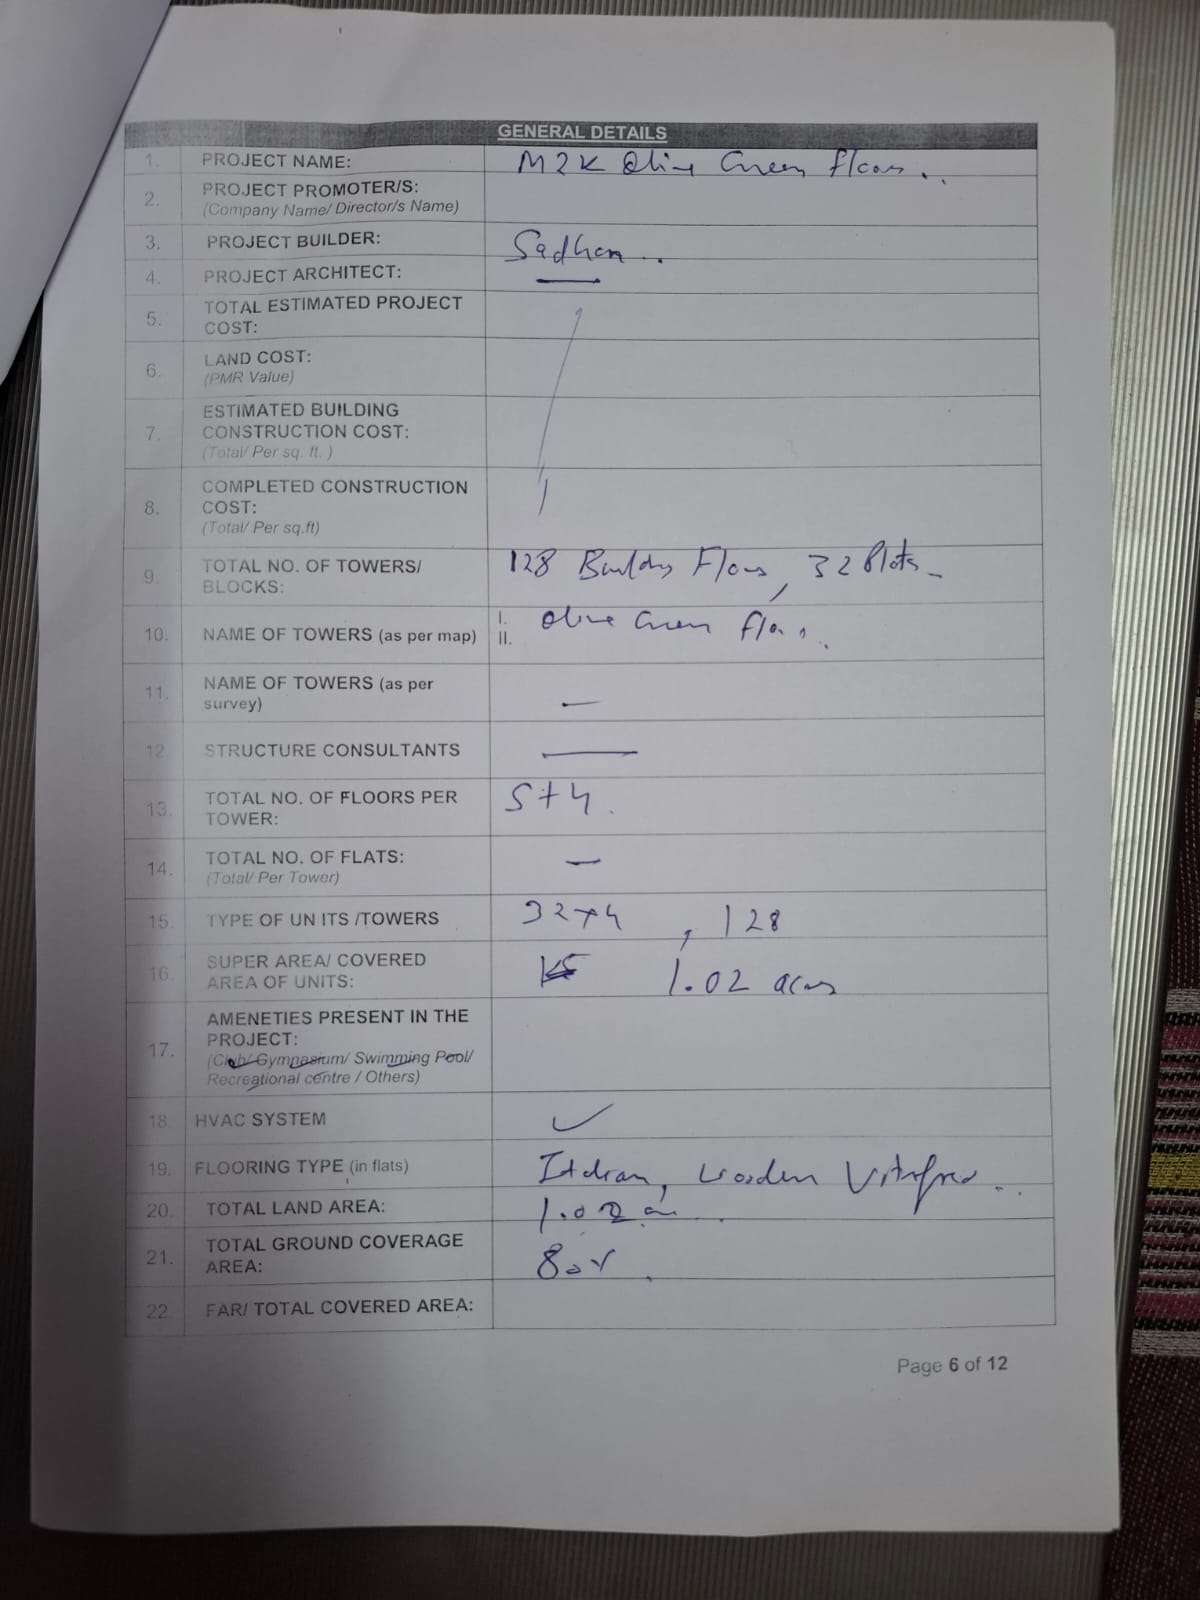 GENERAL DETAILS
1. PROJECT NAME: M2K Olive Green Floors..
2. PROJECT PROMOTER/S:
(Company Name/ Director/s Name)
3. PROJECT BUILDER: Sadhan..
4. PROJECT ARCHITECT: —
5. TOTAL ESTIMATED PROJECT
COST:
6. LAND COST:
(PMR Value)
7. ESTIMATED BUILDING
CONSTRUCTION COST:
(Total/ Per sq. ft. )
8. COMPLETED CONSTRUCTION
COST:
(Total/ Per sq.ft)
9. TOTAL NO. OF TOWERS/ 128 Floors, 32 Plots
BLOCKS:
10. NAME OF TOWERS (as per map) I. Olive Green Floors.
II.
11. NAME OF TOWERS (as per
survey) —
12. STRUCTURE CONSULTANTS —
13. TOTAL NO. OF FLOORS PER S+4.
TOWER:
14. TOTAL NO. OF FLATS: —
(Total/ Per Tower)
15. TYPE OF UN ITS /TOWERS 32×4, 128
16. SUPER AREA/ COVERED
AREA OF UNITS: 1.02 acres
17. AMENETIES PRESENT IN THE
PROJECT:
(Club/ Gymnasium/ Swimming Pool/
Recreational centre / Others)
18. HVAC SYSTEM ✓
19. FLOORING TYPE (in flats) Italian, Wooden Vitrified..
20. TOTAL LAND AREA: 1.02
21. TOTAL GROUND COVERAGE
AREA:
22. FAR/ TOTAL COVERED AREA:
Page 6 of 12